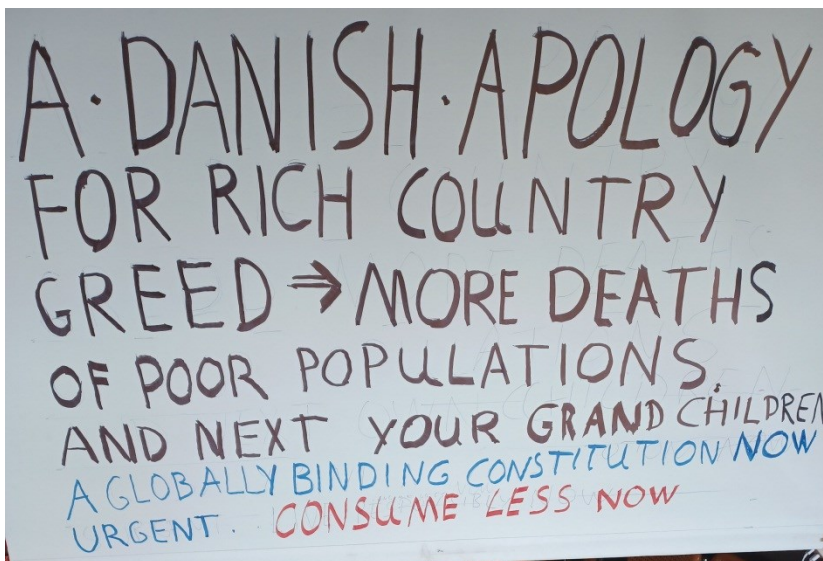 A·DANISH·APOLOGY
FOR RICH COUNTRY
GREED ⇒ MORE DEATHS
OF POOR POPULATIONS.
AND NEXT YOUR GRAND CHILDREN
A GLOBALLY BINDING CONSTITUTION NOW
URGENT. CONSUME LESS NOW